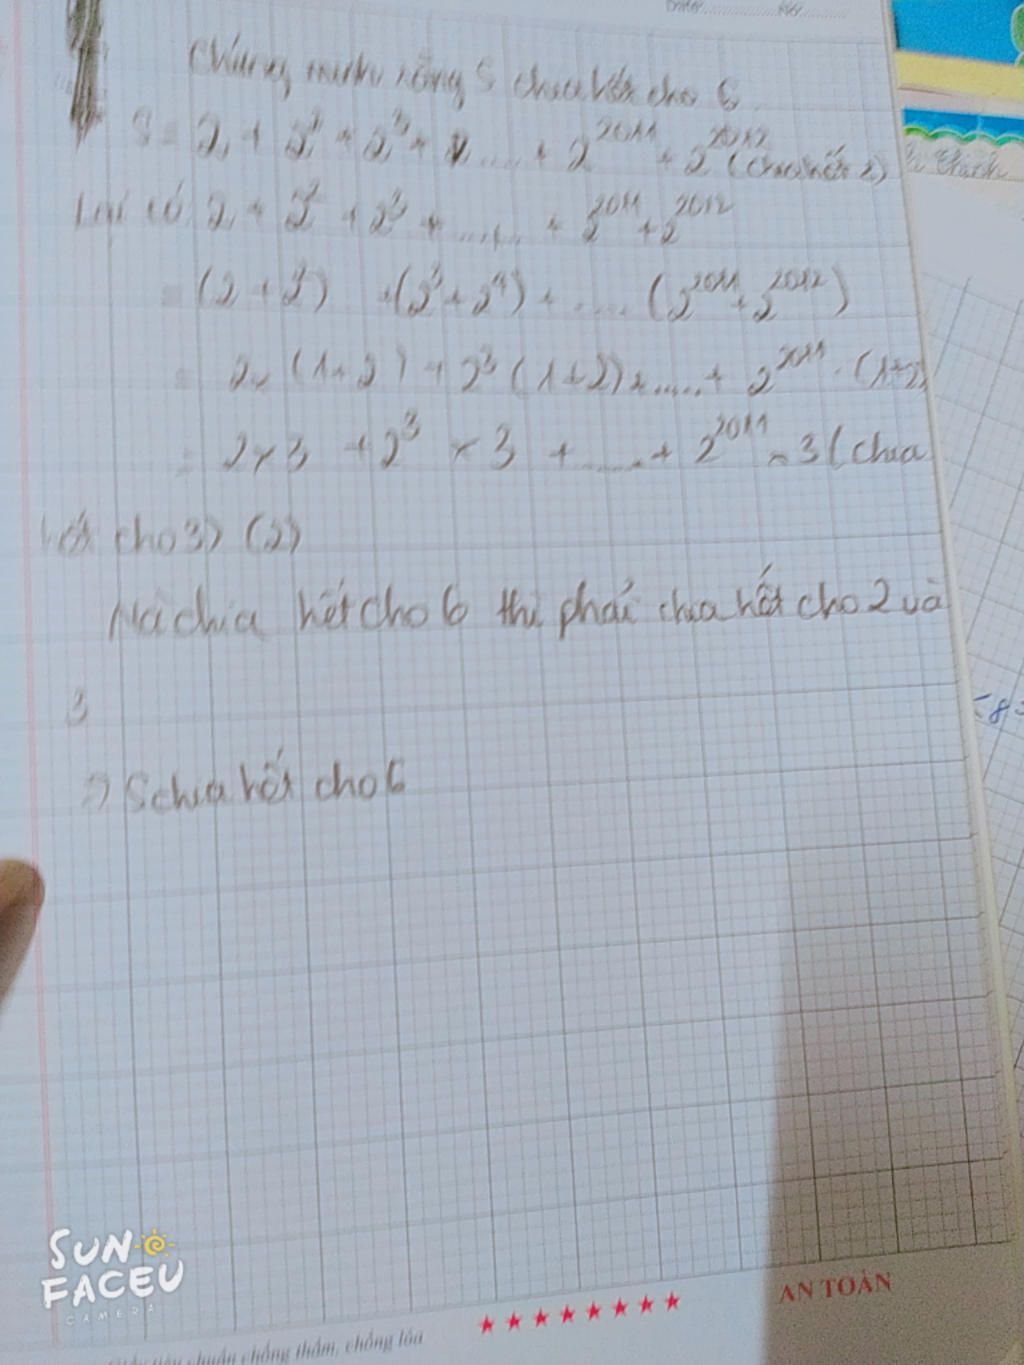 Date............No..........
Chứng minh rằng S chia hết cho 6
S = 2 + 2² + 2³ + ..... + 2²⁰¹¹ + 2²⁰¹² (chia hết 2)
Lại có 2 + 2² + 2³ + ....... + 2²⁰¹¹ + 2²⁰¹²
= (2 + 2²) + (2³ + 2⁴) + ..... (2²⁰¹¹ + 2²⁰¹²)
= 2 × (1 + 2) + 2³ (1 + 2) + ..... + 2²⁰¹¹ . (1+2)
= 2 × 3 + 2³ × 3 + ..... + 2²⁰¹¹ × 3 (chia
hết cho 3) (2)
Mà chia hết cho 6 thì phải chia hết cho 2 và
3
=> S chia hết cho 6
≤ 8
SUN
FACEU
CAMERA
AN TOÀN
tiêu chuẩn chống thấm, chống lóa